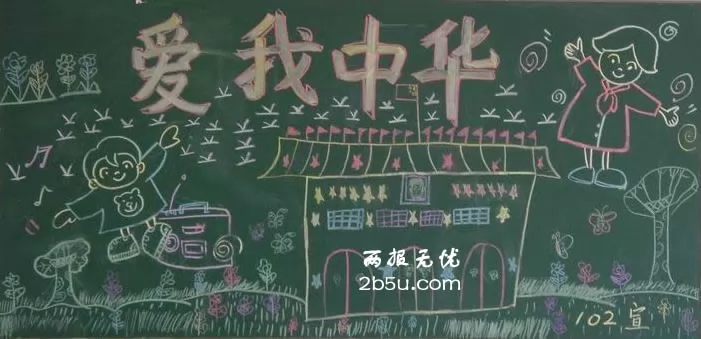 爱我中华
两报无忧
2b5u.com
102宣